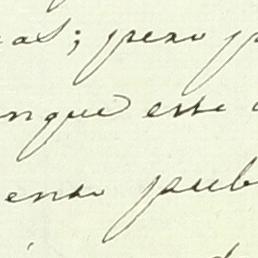 as; pero p
nque este
ento pub